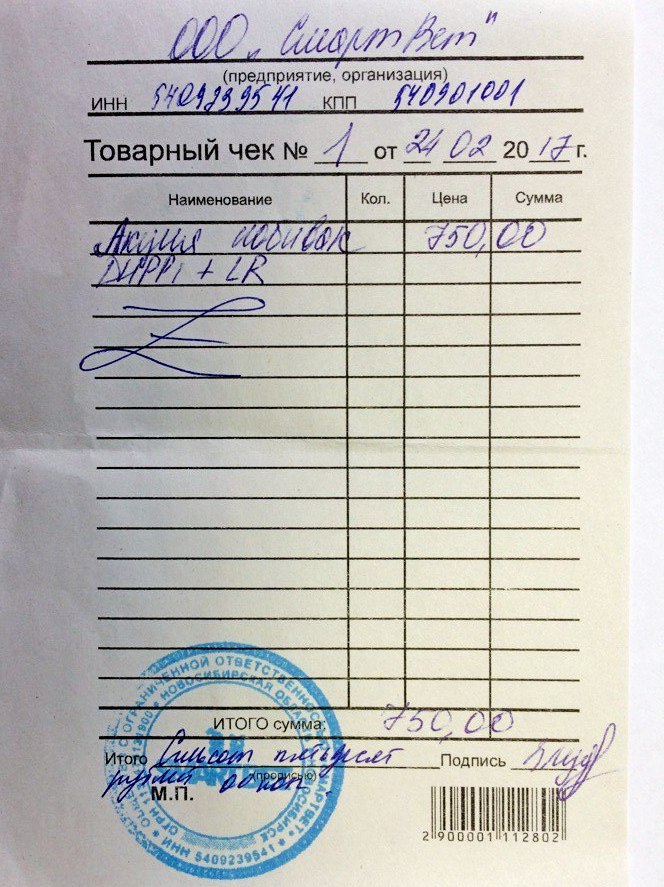 ООО "СмартВет"
(предприятие, организация)
ИНН 5409239541 КПП 540901001
Товарный чек № 1 от 24 02 2017 г.
Наименование Кол. Цена Сумма
Акция 750,00
DHPPi + LR
ИТОГО сумма: 750,00
Итого Семьсот пятьдесят Подпись
рублей 00 коп.
(прописью)
М.П.
С ОГРАНИЧЕННОЙ ОТВЕТСТВЕННОСТЬЮ
НОВОСИБИРСКАЯ ОБЛАСТЬ
ИНН 5409239541
2 900001 112802